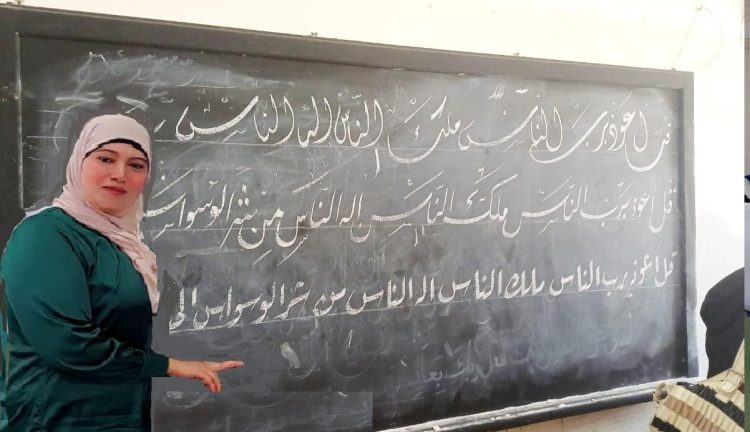 قل اعوذ برب الناس ملك الناس اله الناس
قل اعوذ برب الناس ملك الناس اله الناس من شر الوسواس
قل اعوذ برب الناس ملك الناس اله الناس من شر الوسواس الى